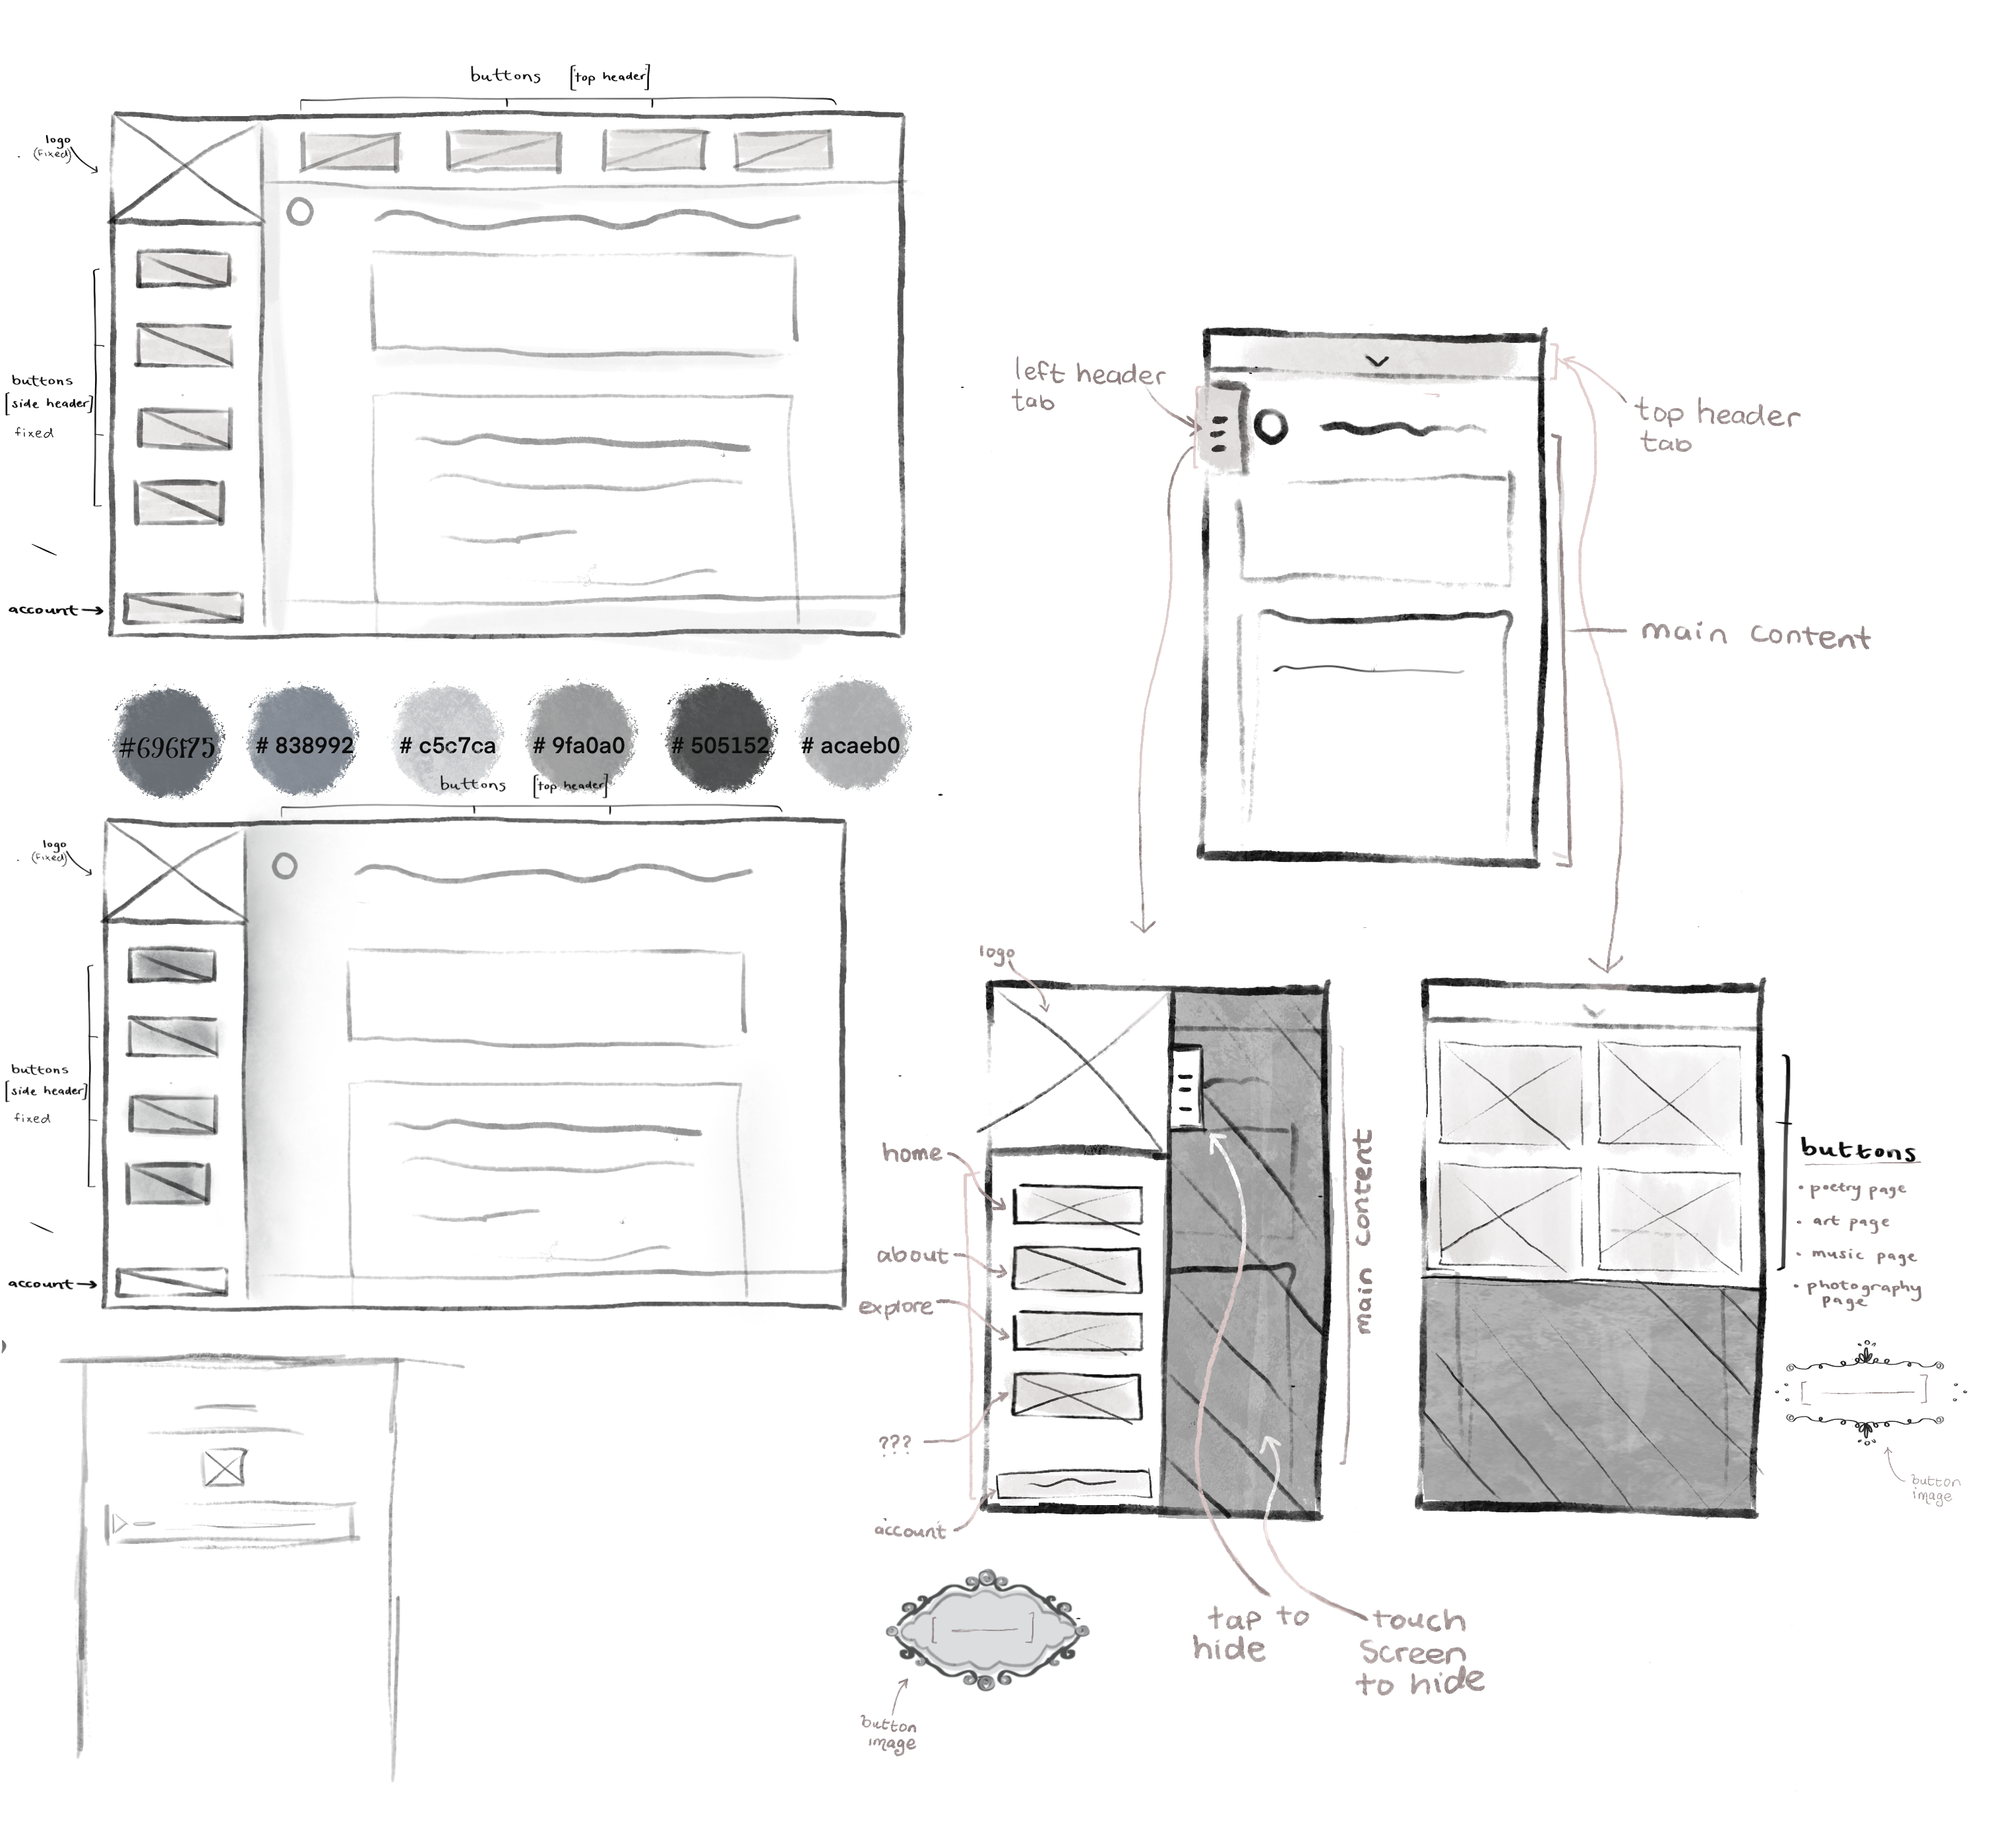 buttons [top header]
logo
(fixed)
buttons
[side header]
fixed
account
#696f75
# 838992
# c5c7ca
# 9fa0a0
# 505152
# acaeb0
buttons [top header]
logo
(fixed)
buttons
[side header]
fixed
account
left header
tab
top header
tab
main content
logo
home
about
explore
???
account
main content
tap to
hide
touch
screen
to hide
buttons
• poetry page
• art page
• music page
• photography
page
button
image
button
image